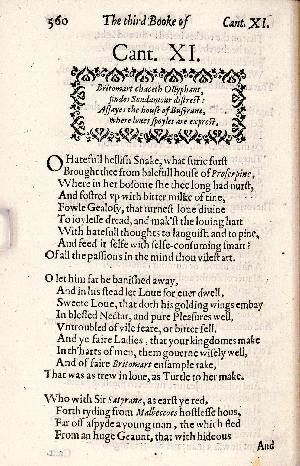 560 The third Booke of Cant. XI.
Cant. XI.
Britomart chaceth Ollyphant,
findes Scudamour distrest:
Assayes the house of Busyrane,
where loues spoyles are exprest.
O Hatefull hellish Snake, what furie furst
Brought thee from balefull house of Proserpine,
Where in her bosome she thee long had nurst,
And fostred vp with bitter milke of tine,
Fowle Gealosy, that turnest loue diuine
To ioylesse dread, and mak'st the louing hart
With hatefull thoughts to languish and to pine,
And feed it selfe with selfe-consuming smart?
Of all the passions in the mind thou vilest art.
O let him far be banished away,
And in his stead let Loue for euer dwell,
Sweete Loue, that doth his golden wings embay
In blessed Nectar, and pure Pleasures well,
Vntroubled of vile feare, or bitter fell.
And ye faire Ladies, that your kingdomes make
In th'harts of men, them gouerne wisely well,
And of faire Britomart ensample take,
That was as trew in loue, as Turtle to her make.
Who with Sir Satyrane, as earst ye red,
Forth ryding from Malbeccoes hostlesse hous,
Far off aspyde a young man, the which fled
From an huge Geaunt, that with hideous
And